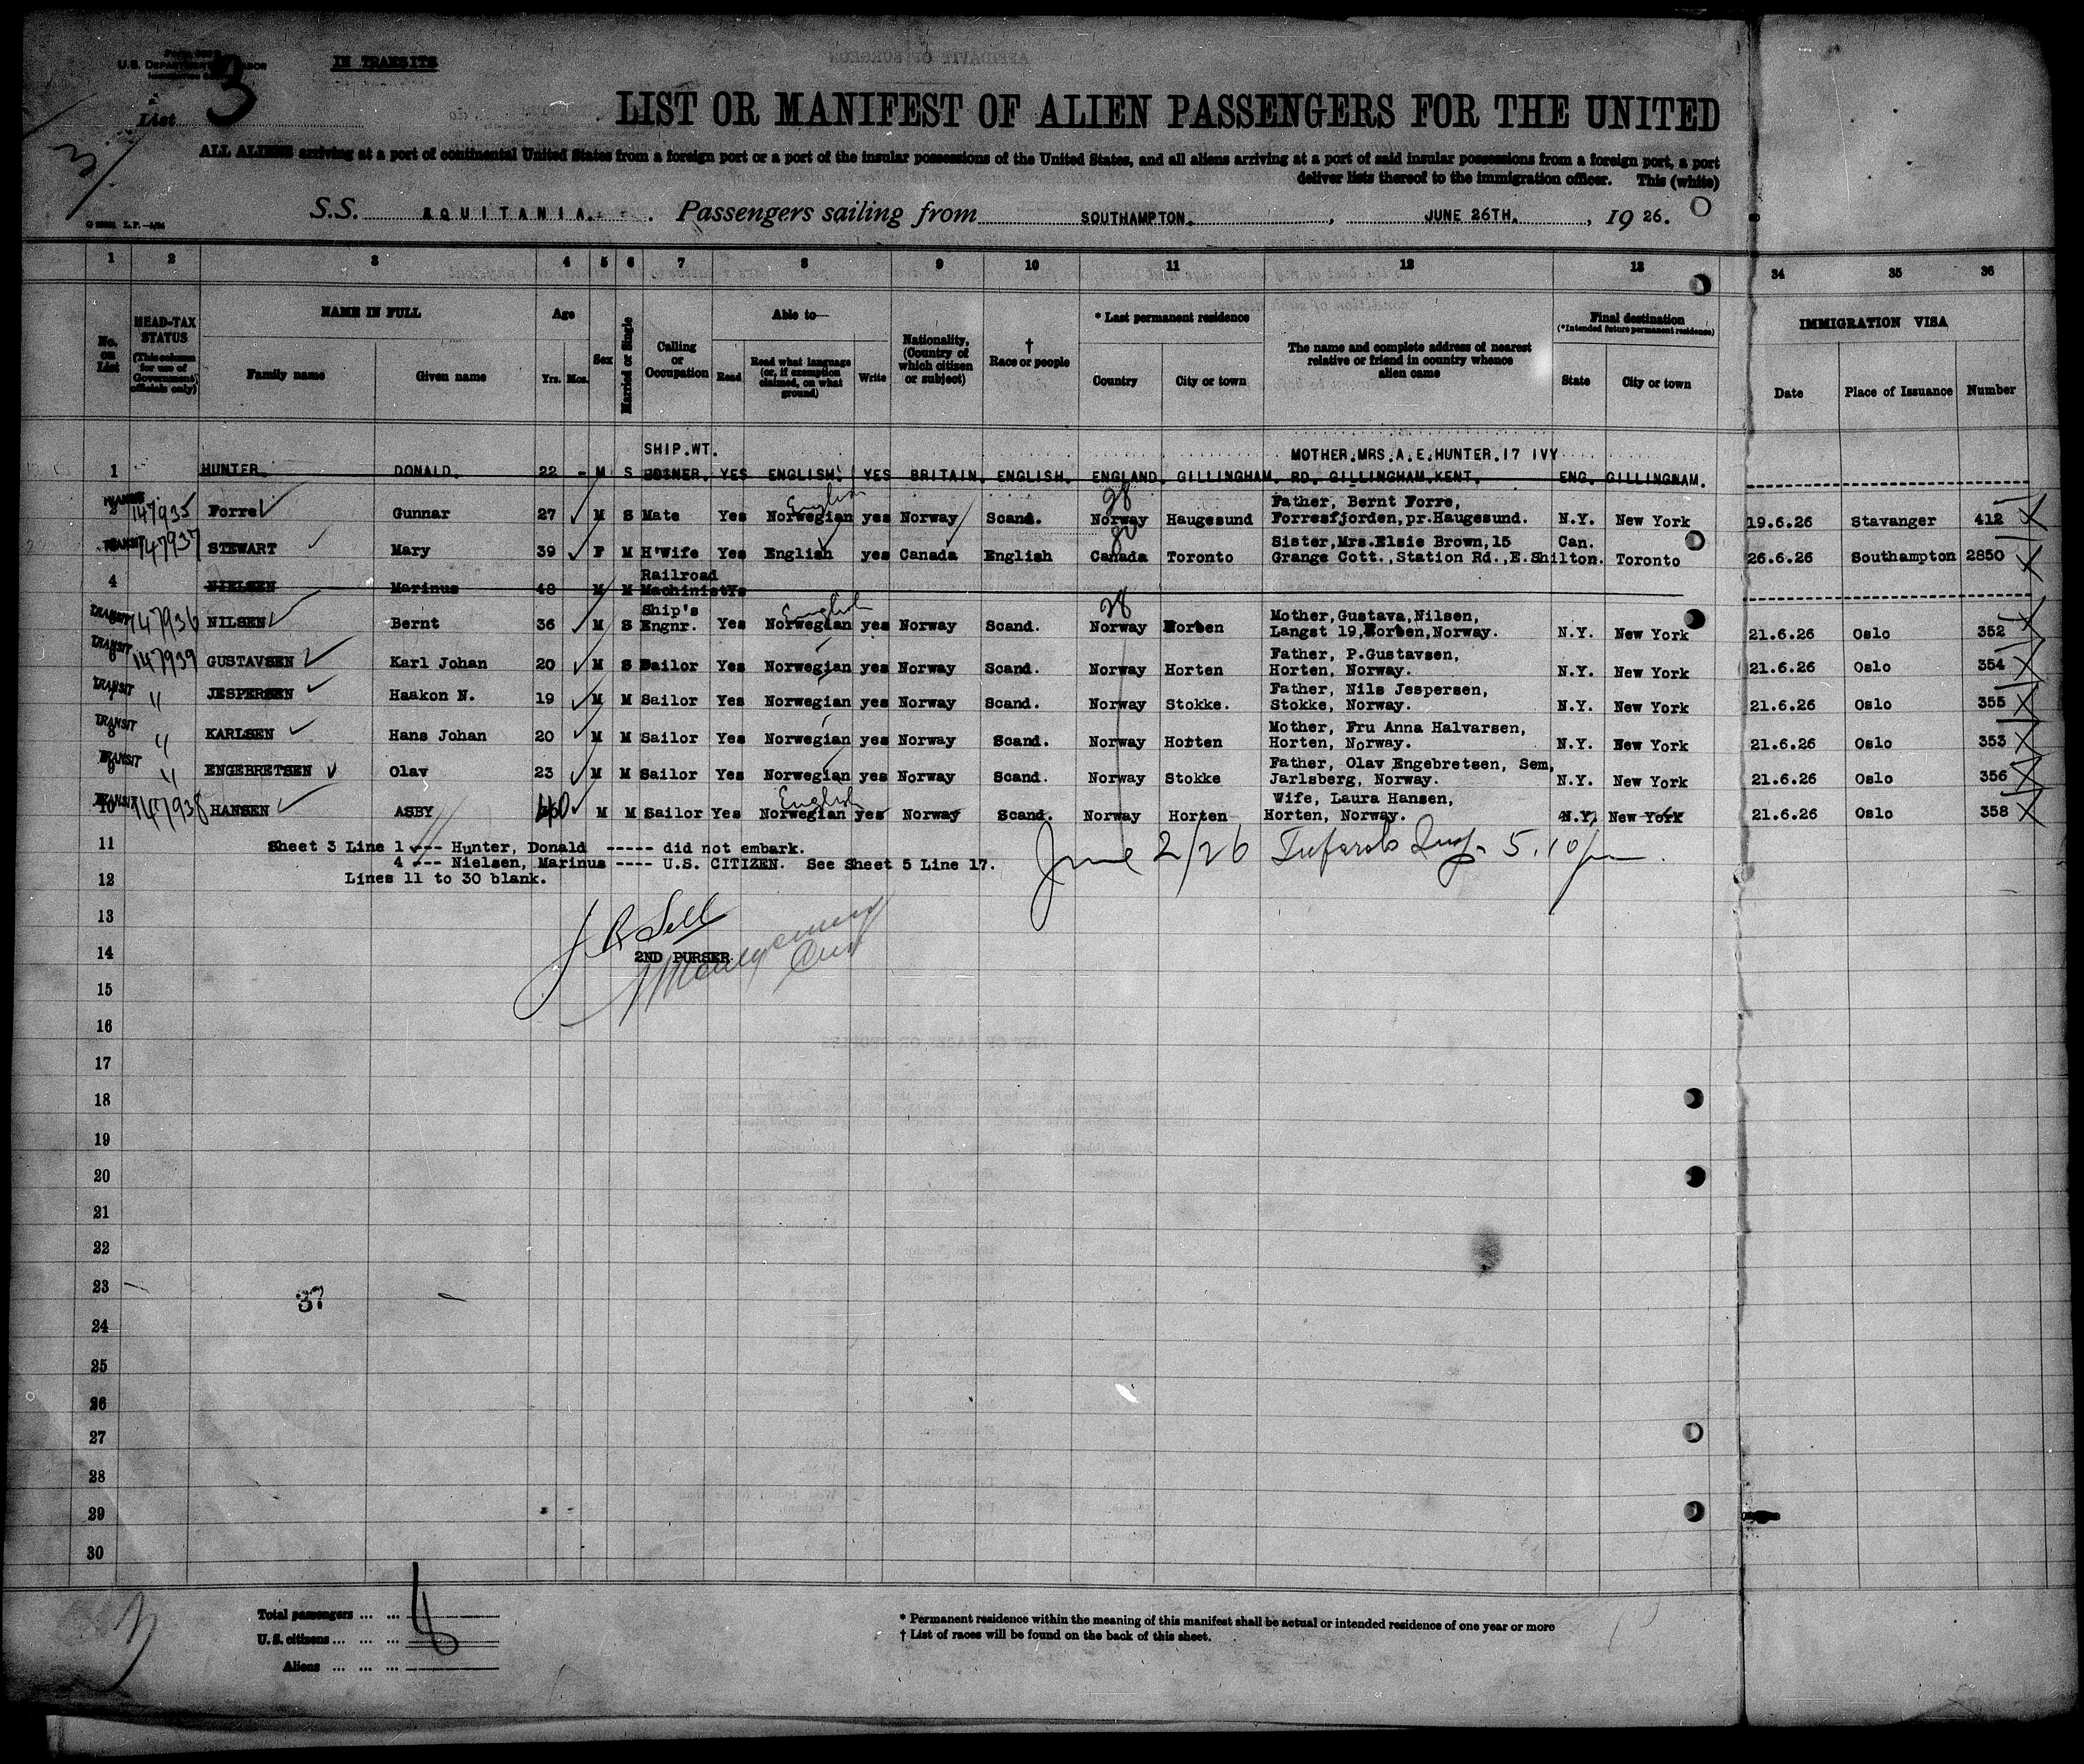 IN TRANSITS
U.S. DEPARTMENT LABOR
List 3
3
LIST OR MANIFEST OF ALIEN PASSENGERS FOR THE UNITED
ALL ALIENS arriving at a port of continental United States from a foreign port or a port of the insular possessions of the United States, and all aliens arriving at a port of said insular possessions from a foreign port, a port
deliver lists thereof to the immigration officer. This (white)
S.S. AQUITANIA. Passengers sailing from SOUTHAMPTON. , JUNE 26TH. , 19 26.
1 2 3 4 5 6 7 8 9 10 11 12 13 34 35 36
No. on List
HEAD-TAX STATUS (This column for use of Government officials only)
NAME IN FULL
Family name Given name
Age
Yrs. Mos.
Sex
Married or Single
Calling or Occupation
Able to—
Read Read what language (or, if exemption claimed, on what ground) Write
Nationality, (Country of which citizen or subject)
† Race or people
* Last permanent residence
Country City or town
The name and complete address of nearest relative or friend in country whence alien came
Final destination (*Intended future permanent residence)
State City or town
IMMIGRATION VISA
Date Place of Issuance Number
SHIP.WT. MOTHER.MRS.A.E.HUNTER.17 IVY
1 HUNTER. DONALD. 22 - M S JOINER. YES ENGLISH. YES BRITAIN. ENGLISH. ENGLAND. GILLINGHAM. RD. GILLINGHAM.KENT. ENG. GILLINGHAM.
English 28 Father, Bernt Forre,
TRANSIT 2 147935 Forre Gunnar 27 M S Mate Yes Norwegian yes Norway Scand. Norway Haugesund Forresfjorden,pr.Haugesund. N.Y. New York 19.6.26 Stavanger 412
Sister,Mrs.Elsie Brown,15 Can.
TRANSIT 147937 STEWART Mary 39 F M H'Wife Yes English yes Canada English Canada Toronto Grange Cott.,Station Rd.,E.Shilton. Toronto 26.6.26 Southampton 2850
Railroad
4 NIELSEN Marinus 48 M M Machinist Ys
Ship's English 28 Mother,Gustava,Nilsen,
TRANSIT 147936 NILSEN Bernt 36 M S Engnr. Yes Norwegian yes Norway Scand. Norway Horten Langst 19,Horten,Norway. N.Y. New York 21.6.26 Oslo 352
Father, P.Gustavsen,
TRANSIT 6 147939 GUSTAVSEN Karl Johan 20 M S Sailor Yes Norwegian yes Norway Scand. Norway Horten Horten, Norway. N.Y. New York 21.6.26 Oslo 354
Father, Nils Jespersen,
TRANSIT 7 " JESPERSEN Haakon N. 19 M M Sailor Yes Norwegian yes Norway Scand. Norway Stokke. Stokke, Norway. N.Y. New York 21.6.26 Oslo 355
Mother, Fru Anna Halvarsen,
TRANSIT 8 " KARLSEN Hans Johan 20 M M Sailor Yes Norwegian yes Norway Scand. Norway Horten Horten, Norway. N.Y. New York 21.6.26 Oslo 353
Father, Olav Engebretsen, Sem,
TRANSIT 9 " ENGEBRETSEN Olav 23 M M Sailor Yes Norwegian yes Norway Scand. Norway Stokke Jarlsberg, Norway. N.Y. New York 21.6.26 Oslo 356
English Wife, Laura Hansen,
TRANSIT 10 147938 HANSEN ASBY 40 M M Sailor Yes Norwegian yes Norway Scand. Norway Horten Horten, Norway. N.Y. New York 21.6.26 Oslo 358
11 Sheet 3 Line 1 --- Hunter, Donald ----- did not embark.
4 --- Nielsen, Marinus ---- U.S. CITIZEN. See Sheet 5 Line 17.
June 2/26 5.10 pm
12 Lines 11 to 30 blank.
13
14 2ND PURSER
15
16
17
18
19
20
21
22
23
37
24
25
26
27
28
29
30
Total passengers ... ...
U.S. citizens ... ... ...
Aliens ... ... ...
* Permanent residence within the meaning of this manifest shall be actual or intended residence of one year or more
† List of races will be found on the back of this sheet.